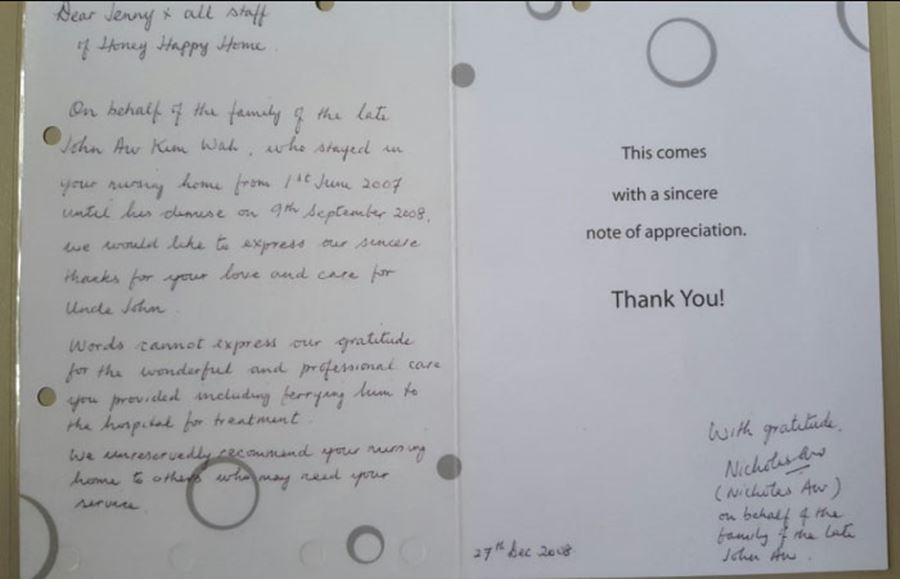 Dear Jenny & all staff
of Honey Happy Home.
On behalf of the family of the late
John Aw Kum Wah, who stayed in
your nursing home from 1st June 2007
until his demise on 9th September 2008,
we would like to express our sincere
thanks for your love and care for
Uncle John.
Words cannot express our gratitude
for the wonderful and professional care
you provided including ferrying him to
the hospital for treatment.
We unreservedly recommend your nursing
home to others who may need your
service.
This comes
with a sincere
note of appreciation.
Thank You!
With gratitude.
Nicholas Aw
(Nicholas Aw)
on behalf of the
family of the late
John Aw.
27th Dec 2008